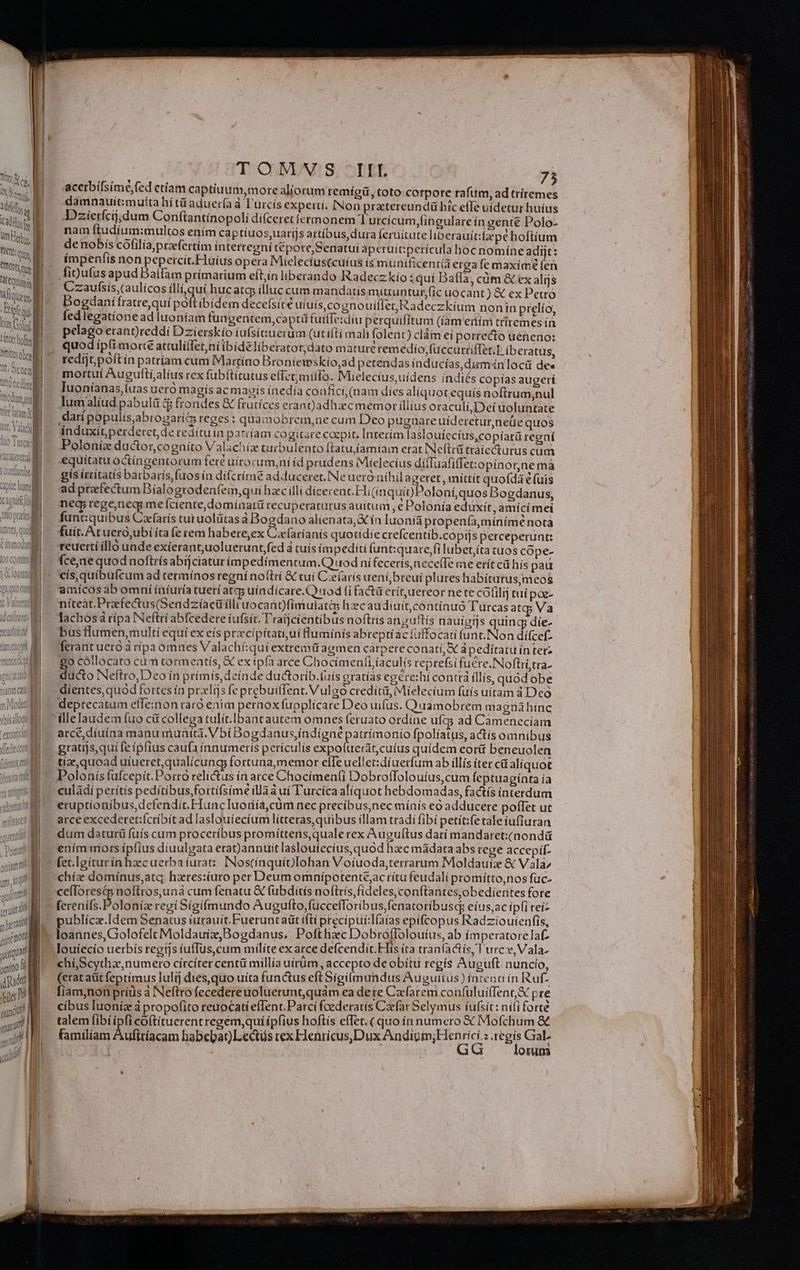 TOMVS III. 73
acerbissimè, sed etiam captiuum, more aliorum remigũ, toto corpore rasum, ad triremes
damnauit: multa hi tũ aduersa à Turcis experti. Non prætereundũ hic esse uidetur huius
Dzierscij, dum Constantinopoli disceret sermonem Turcicum, singulare in gentē Polo-
nam studium: multos enim captiuos, uarijs artibus, dum seruitute liberauit: sæpe hostium
de nobis cõsilia, præsertim interregni tēpore, Senatui aperuit: pericula hoc nomine adijt:
impensis non pepercit. Huius opera Mielecius (cuius is munificentiã erga se maximē sen
sit) usus apud Bassam primarium est, in liberando Radeczkio: qui Bassa, cùm & ex alijs
Czausis, (aulicos illi, qui huc atq; illuc cum mandatis mittuntur, sic uocant) & ex Petro
Bogdani fratre, qui post ibidem decessit è uiuis, cognouisset, Radeczkium non in prelio,
sed legatione ad Iuoniam fungentem, captũ fuisse: diu perquisitum (iam enim triremes in
pelago erant) reddi Dzierskio iussit: uerùm (ut isti mali solent) clàm ei porrecto ueneno:
quod ipsi mortē attulisset, ni ibidē liberator, dato maturè remedio, succurrisset. Liberatus,
redijt, pòst in patriam cum Martino Broniewskio, ad petendas inducias, dum in locũ de-
mortui Augusti, alius rex substitutus esset, misso. Mielecius, uidens indiēs copias augeri
Iuonianas, suas uerò magis ac magis inedia confici, (nam dies aliquot equis nostrum, nul
lum aliud pabulũ q̃ frondes & frutices erant) adhæc memor illius oraculi, Dei uoluntate
dari populis, abrogariq; reges: quamobrem, ne cum Deo pugnare uideretur, neúe equos
induxit, perderet, de reditu in patriam cogitare cœpit. Interim Iaslouiecius, copiarũ regni
Poloniæ ductor, cognito Valachiæ turbulento statu, iamiam erat Nestrũ traiecturus cum
equitatu octingentorum ferè uirorum, ni id prudens Mielecius dissuasisset: opinor, ne ma
gis irritatis barbaris, suos in discrimē adduceret. Ne uerò nihil ageret, mittit quosdã è suis
ad præfectum Bialogrodensem, qui hæc illi dicerent. Hi (inquit) Poloni, quos Bogdanus,
neq; rege, neq; me sciente, dominatũ recuperaturus auitum, è Polonia eduxit, amici mei
sunt: quibus Cæsaris tui uolũtas à Bogdano alienata, & in Iuoniã propensa, minimē nota
fuit. At uerò, ubi ita se rem habere, ex Cæsarianis quotidie crescentib. copijs perceperunt:
reuerti illò unde exierant, uoluerunt, sed à tuis impediti sunt: quare, si lubet, ita tuos cõpe-
sce, ne quod nostris abijciatur impedimentum. Quod ni feceris, necesse me erit cũ his pau
cis, quibuscum ad terminos regni nostri & tui Cæsaris ueni, breui plures habiturus, meos
amicos ab omni iniuria tueri atq; uindicare. Quod si factũ erit, uereor ne te cõsilij tui pœ-
niteat. Præfectus (Sendziacũ illi uocant) simulatq; hæc audiuit, continuò Turcas atq; Va
lachos à ripa Nestri abscedere iussit. Traijcientibus nostris angustis nauigijs quinq; die-
bus flumen, multi equi ex eis præcipitati, ui fluminis abrepti ac suffocati sunt. Non discef-
ferant uerò à ripa omnes Valachi: qui extremũ agmen carpere conati, & à peditatu in ter-
go collocato cum tormentis, & ex ipsa arce Chocimensi, iaculis repressi fuêre. Nostri, tra-
ducto Nestro, Deo in primis, deinde ductorib. suis gratias egêre: hi contrà illis, quòd obe
dientes, quòd fortes in prælijs se prębuissent. Vulgò creditũ, Mielecium suis uitam à Deo
deprecatum esse: non rarò enim pernox supplicare Deo uisus. Quamobrem magnã hinc
ille laudem suo cũ collega tulit. Ibant autem omnes seruato ordine usq; ad Cameneciam
arcē, diuina manu munitã. Vbi Bogdanus, indignē patrimonio spoliatus, actis omnibus
gratijs, qui se ipsius causa innumeris periculis exposuerãt, cuius quidem eorũ beneuolen
tiæ, quoad uiueret, qualicunq; fortuna, memor esse uellet: diuersum ab illis iter cũ aliquot
Polonis suscepit. Porrò relictus in arce Chocimensi Dobrossolouius, cum septuaginta ia
culãdi peritis peditibus, fortissimē illã à ui Turcica aliquot hebdomadas, factis interdum
eruptionibus, defendit. Hunc Iuonia, cùm nec precibus, nec minis eò adducere posset ut
arce excederet: scribit ad Iaslouiecium litteras, quibus illam tradi sibi petit: se tale iusiuran
dum daturũ suis cum proceribus promittens, quale rex Augustus dari mandaret: (nondũ
enim mors ipsius diuulgata erat) annuit Iaslouiecius, quòd hæc mãdata abs rege accepif-
set. Igitur in hæc uerba iurat: Nos (inquit) Iohan Voiuoda, terrarum Moldauiæ & Vala-
chiæ dominus, atq; hæres: iuro per Deum omnipotentē, ac ritu feudali promitto, nos suc-
cessoresq; nostros, unà cum senatu & subditis nostris, fideles, constantes, obedientes fore
serenifs. Poloniæ regi Sigismundo Augusto, successoribus, senatoribusq; eius, ac ipsi rei-
publicæ. Idem Senatus iurauit. Fuerunt aũt isti præcipui: Isaias episcopus Radziouiensis,
Ioannes, Golofelt Moldauiæ, Bogdanus. Post hæc Dobrossolouius, ab imperatore Iaf-
louiecio uerbis regijs iussus, cum milite ex arce descendit. His ita transactis, Turcæ, Vala-
chi, Scythæ, numero circiter centũ millia uirûm, accepto de obitu regis August. nuncio,
(erat aũt septimus Iulij dies, quo uita functus est Sigismundus Augustus) intenti in Ruf-
siam, non priùs à Nestro secedere uoluerunt, quàm ea de re Cæsarem consuluissent, & pre
cibus Iuoniæ à proposito reuocati essent. Parci fœderatis Cæsar Selymus iussit: nisi fortè
talem sibi ipsi cõstituerent regem, qui ipsius hostis esset. (quo in numero & Moschum &
familiam Austriacam habebat) Lectus rex Henricus, Dux Andium, Henrici 2. regis Gal-
GG lorum